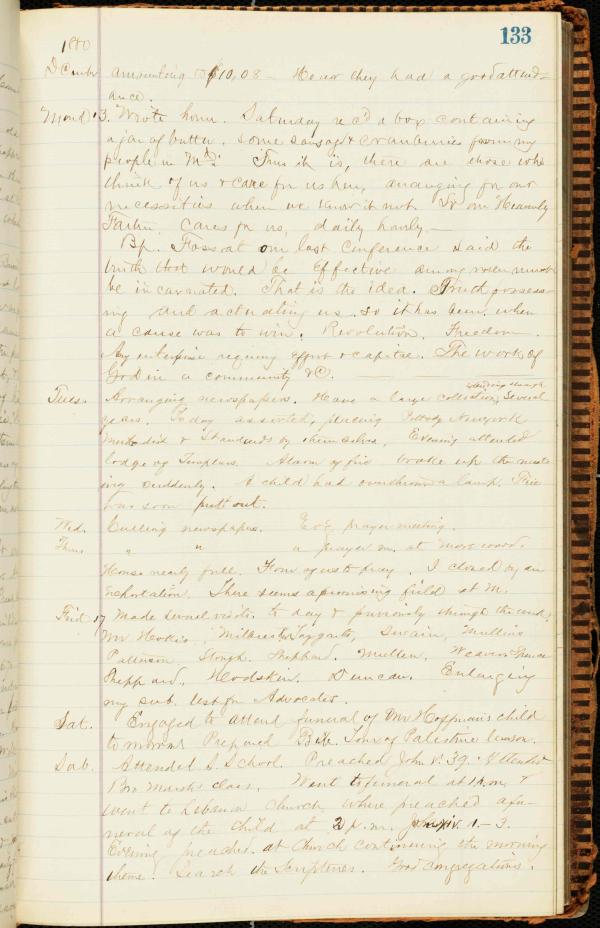 133
1880
December amounting to $10,08 – Hear they had a good attend-
ance.
Mond 13. Wrote home. Saturday rec'd a box containing
a jar of butter, some sausage & cranberries from my
people in Md. Thus it is, there are those who
think of us & care for us here, arranging for our
necessities when we know it not. So our Heavenly
Father cares for us, daily hourly.–
Bp. Foss at our last Conference said the
truth that would be effective among men must
be incarnated. That is the idea. Truth possess-
ing and actuating us. So it has been when
a cause was to win. Revolution. Freedom.
Any enterprise requiring effort & capital. The work of
God in a community &c.
Tues. Arranging newspapers. Have a large collection, several
years. Today assorted, placing New York
Methodist & Standards by themselves. Evening attended
lodge of Templars. Alarm of fire broke up the meet-
ing suddenly. A child had overthrown a lamp. Fire
was soon put out.
Wed. Culling newspapers. Eve. prayer meeting.
Thurs. " " " a prayer m. at Morewood.
House nearly full. Four of us to pray. I closed by an
exhortation. There seems a promising field at M.
Frid 17 Made several visits. to day & previously through the week,
Mr Hooks, Taggarts, Swain, Mullins
Patterson, Stough, Sheppard. Mullen, Weaver
Sheppard, Hodskin, Duncan. Enlarging
my sub. list for Advocates.
Sat. Engaged to attend funeral of Mr Hoffman's child
to morrow Prepared Bible Tour of Palestine lesson.
Sab. Attended S School. Preached John V: 39. Attended
Bro Marsh's class. Went to funeral at 1 p.m. &
went to Lebanon church where preached a fu-
neral of the child at 2 p.m. John xiv. 1.–3.
Evening preached at Church continuing the morning
theme. Search the Scriptures. Good congregations.